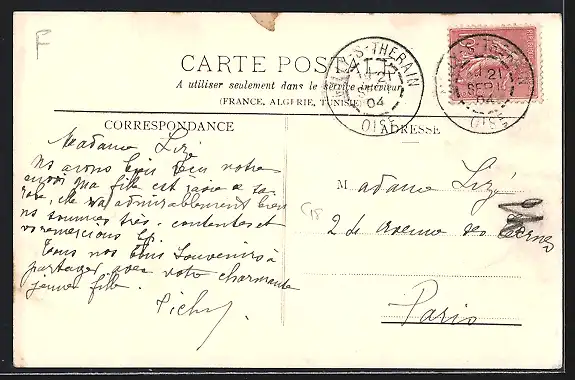 F
CARTE POSTALE
A utiliser seulement dans le service intérieur
(FRANCE, ALGERIE, TUNISIE)
S-THERAIN
21
SEPT
04
OISE
21
SEPT
04
OISE
CORRESPONDANCE
ADRESSE
Madame Lizé
Ns avons bien reçu votre
envoi ma fille est ravie de sa
robe, elle va admirablement bien
ns sommes très contentes et
vs remercions
Tous nos bons souvenirs à
partager avec votre charmante
jeune fille.
Madame Lizé
24 avenue des Ternes
Paris
C 18